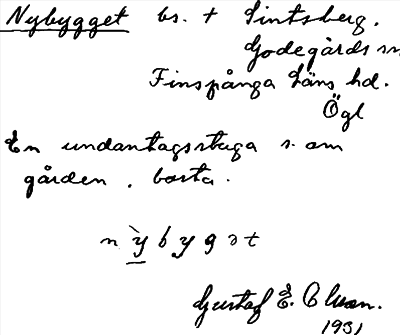 Nybygget bs. t Sintsberg.
Godegårds sn
Finspånga Läns hd.
Ögl
En undantagsstuga s. om
gården, borta.
nỳbygət
Gustaf E. Olsson.
1931